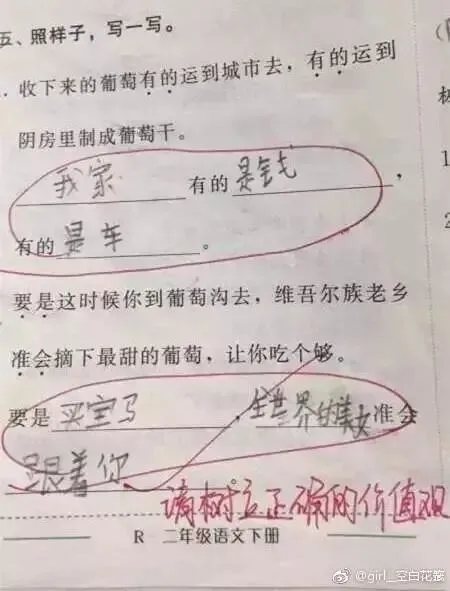 五、照样子，写一写。
. 收下来的葡萄有的运到城市去，有的运到
阴房里制成葡萄干。
我家 有的 是钱 ，
有的 是车 。
要是这时候你到葡萄沟去，维吾尔族老乡
准会摘下最甜的葡萄，让你吃个够。
要是 买宝马 ，全世界的美女 准会
跟着你
请树立正确的价值观
R 二年级语文下册
@girl_空白花簌